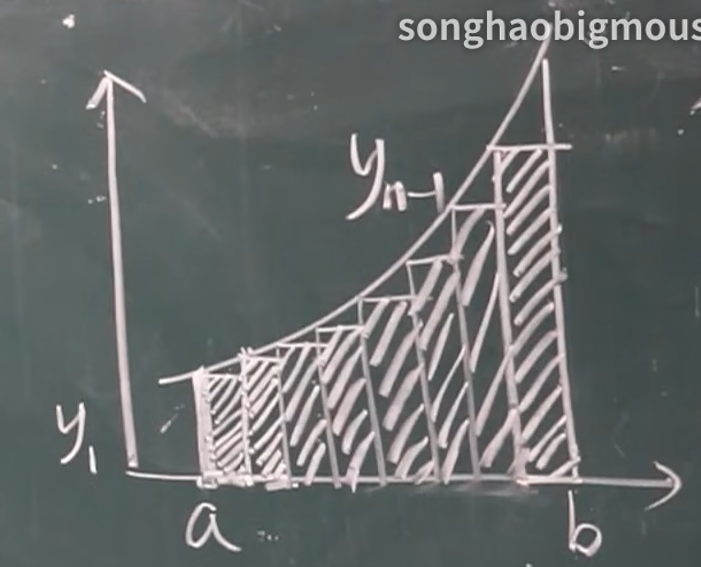 songhaobigmous
yn-1
y1
a
b